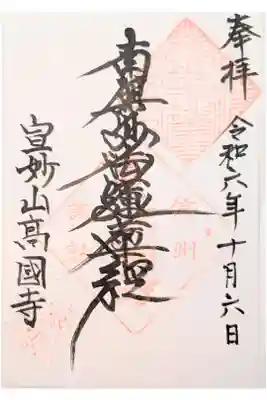 奉拝 令和六年十月六日
南無妙法蓮華経
宣妙山高國寺